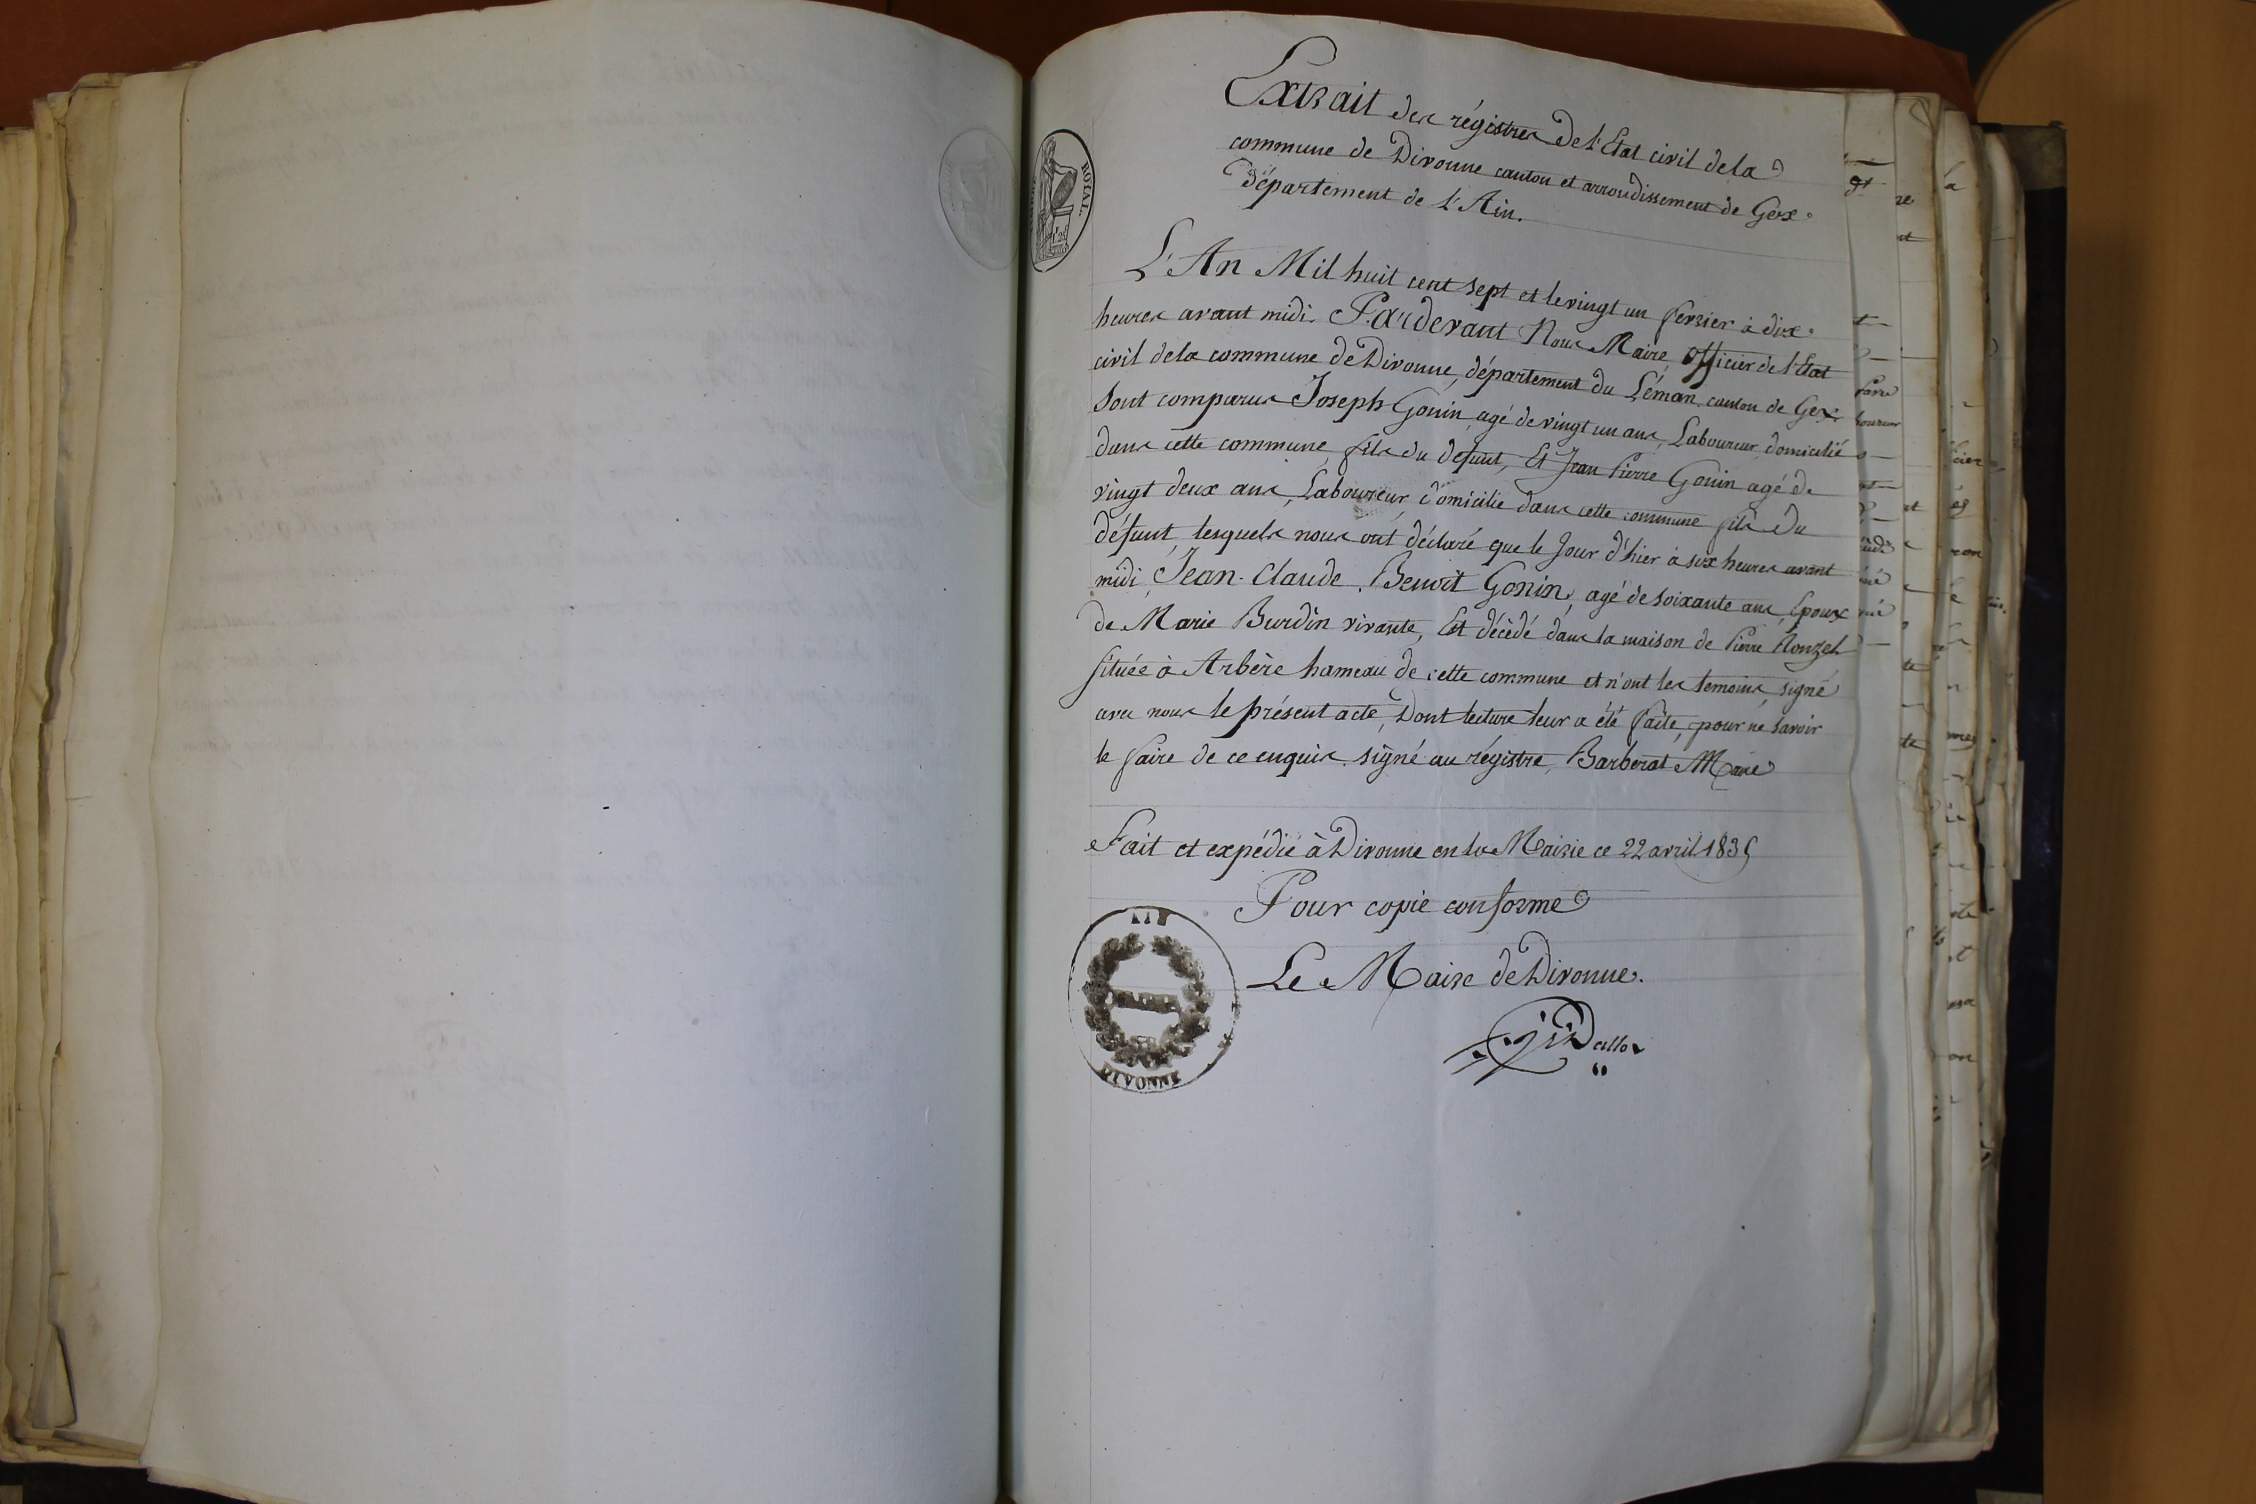 Extrait des régistres de l'Etat civil de la
commune de Divonne canton et arrondissement de Gex
département de l'Ain.
ROYAL
L'An Mil huit cent sept et le vingt un fevrier à dix
heures avant midi. Pardevant Nous Maire, officier de l'Etat
civil de la commune de Divonne, département du Léman canton de Gex
Sont comparus Joseph Gonin, agé de vingt un ans, Laboureur, domicilié
dans cette commune, fils du defunt, Et Jean Pierre Gonin agé de
vingt deux ans, Laboureur, domicilie dans cette commune fils du
défunt, lesquels nous ont déclaré que le Jour d'hier à six heures avant
midi, Jean-Claude Benoit Gonin, agé de soixante ans, Epoux
de Marie Burdin vivante, Est décédé dans la maison de Pierre
située à Arbère hameau de cette commune et n'ont les temoins, signé
avec nous le présent acte, Dont lecture leur a été faite, pour ne savoir
le faire de ce enquis. signé au régistre, Barberat Maire
Fait et expédié à Divonne en la Mairie ce 22 avril 1835
Pour copie conforme
Le Maire de Divonne.
AIN
MAIRIE
DIVONNE